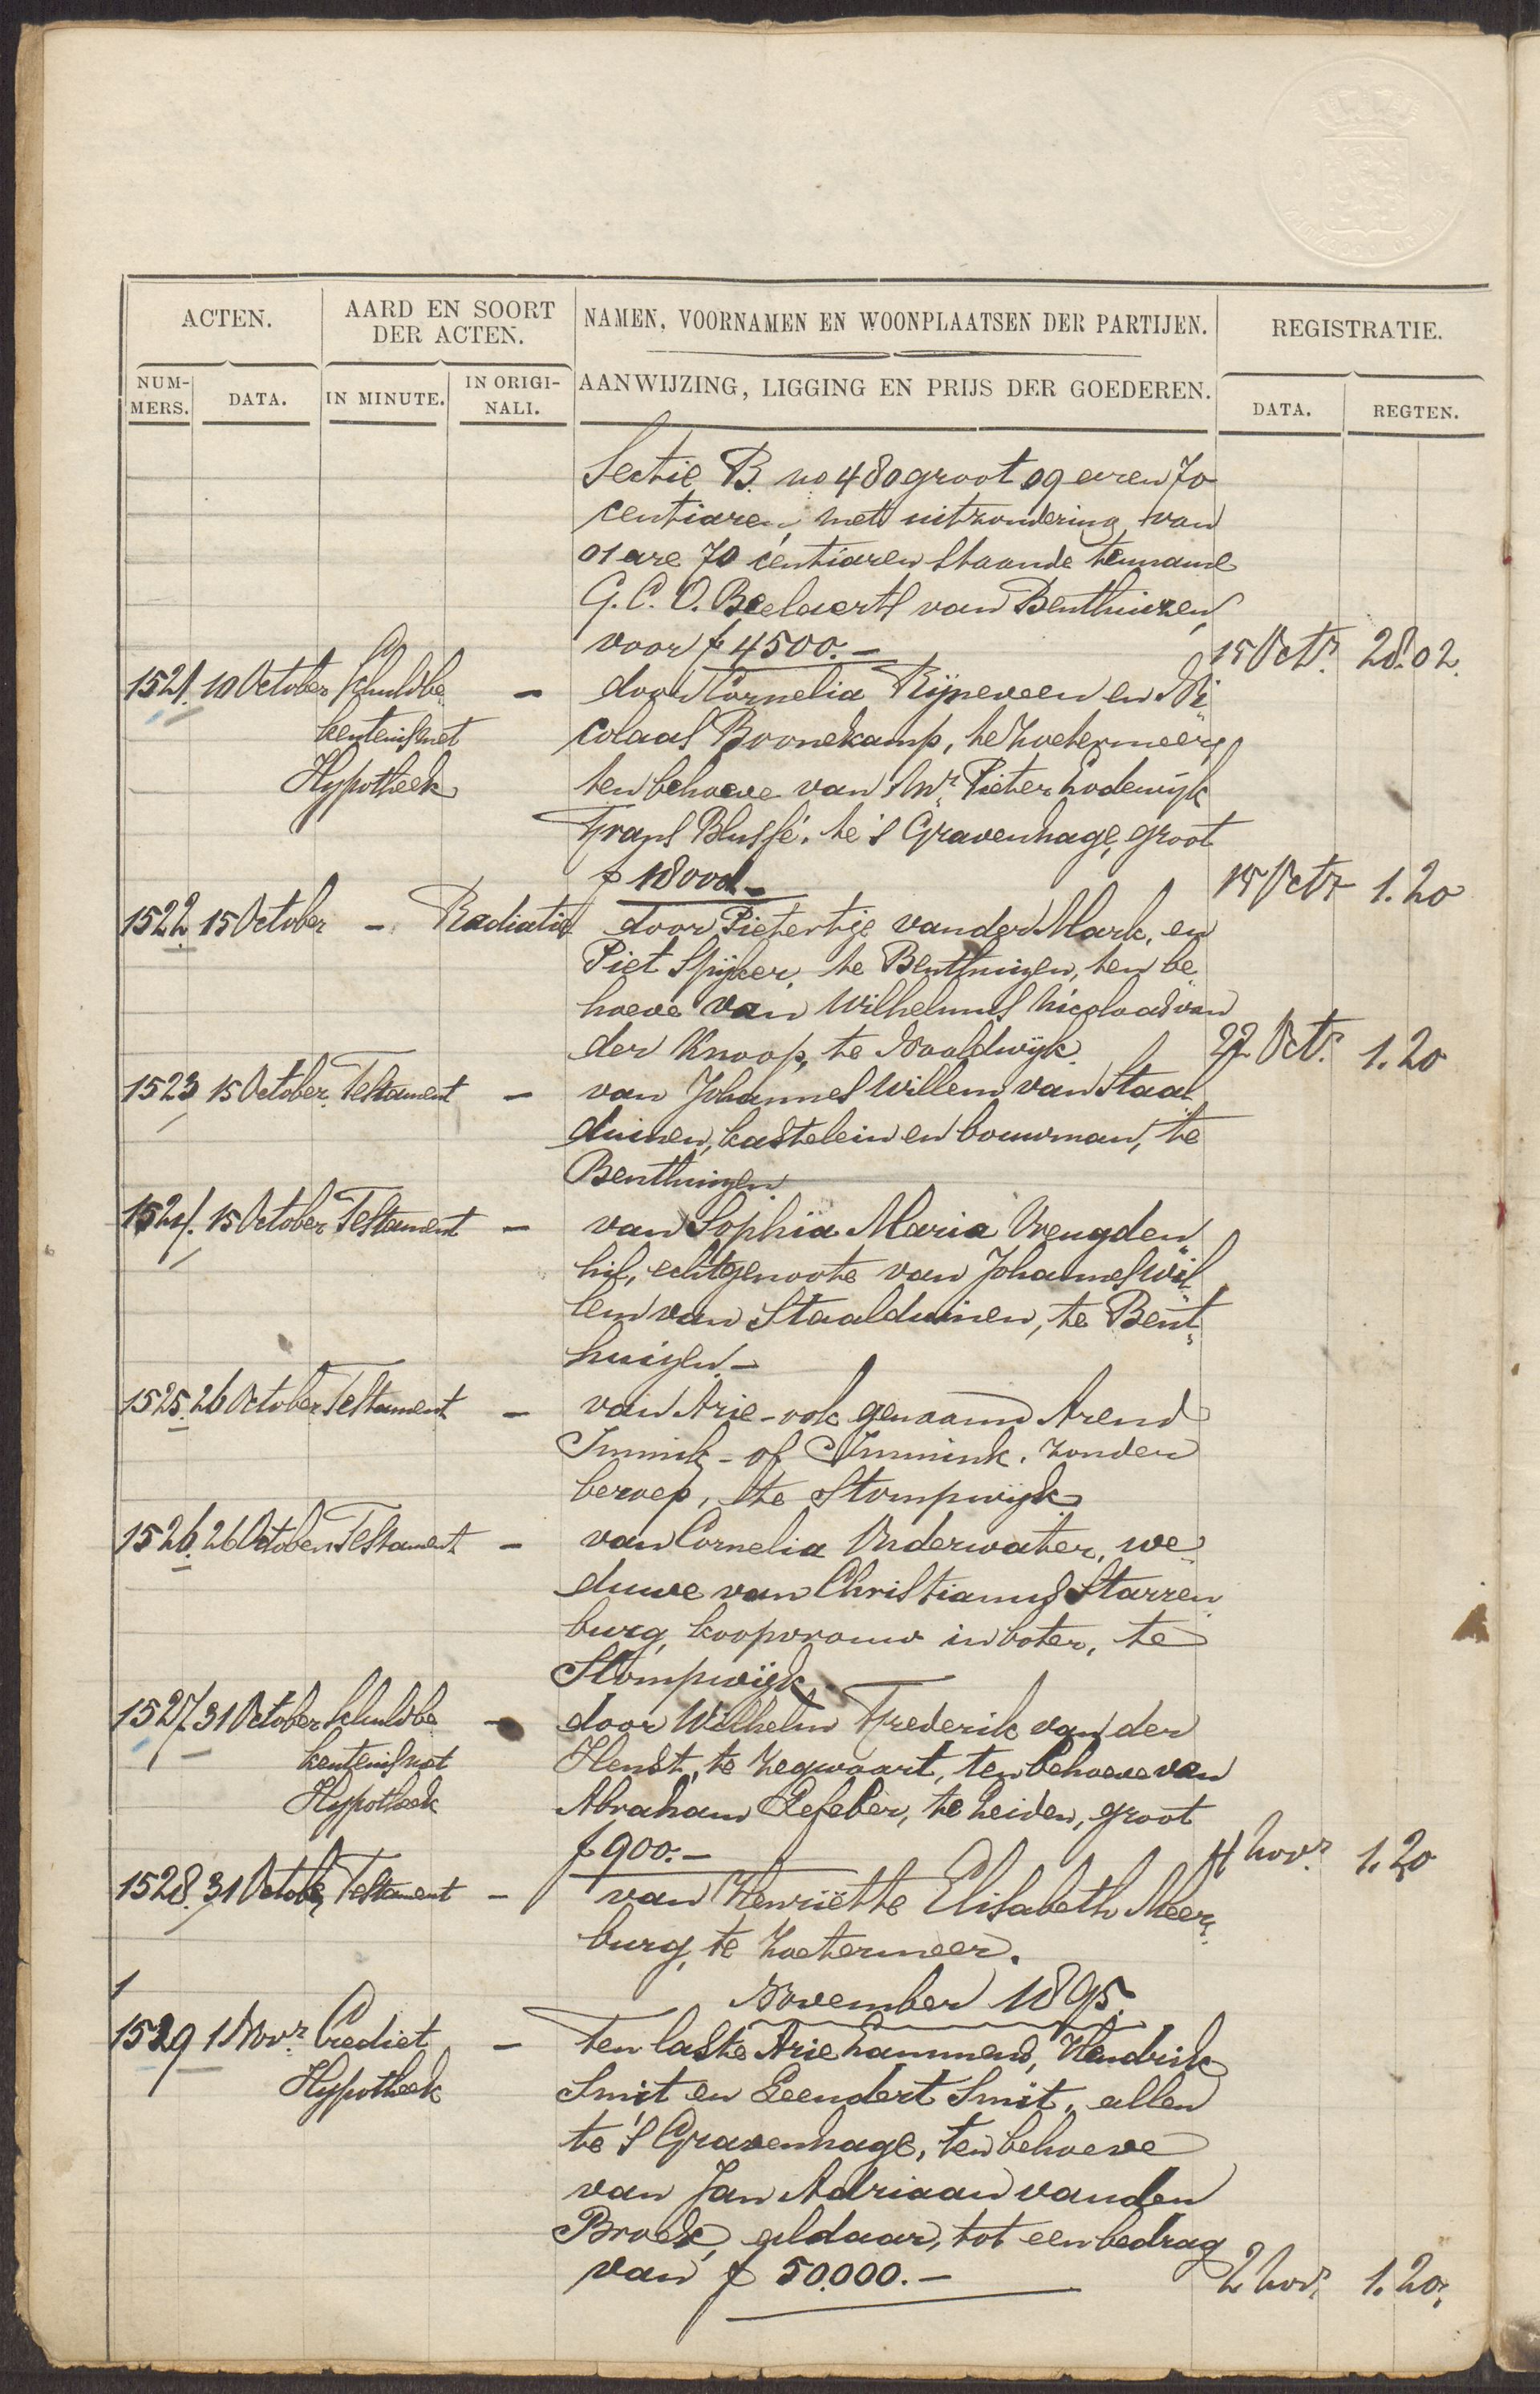 ACTEN.
AARD EN SOORT
DER ACTEN.
NAMEN, VOORNAMEN EN WOONPLAATSEN DER PARTIJEN.
REGISTRATIE.
NUM-
MERS.
DATA.
IN MINUTE.
IN ORIGI-
NALI.
AANWIJZING, LIGGING EN PRIJS DER GOEDEREN.
DATA.
REGTEN.
Sectie B. no 480 groot 09 aren 70
centiaren, met uitzondering van
01 are 70 centiaren staande ten name
G. C. O. Beelaerts van Benthuizen,
voor f 4500.- 15 Octr. 28.02.
1521. 10 October Schuldbe - door Cornelia Rijneveen en Ni
kentenis met colaas Boonekamp, te Zoetermeer,
Hypotheek ten behoeve van Mr. Pieter Lodewijk
Frans Blussé, te 's Gravenhage, groot
f 18000.- 15 Octr 1.20
1522. 15 October - Radiatie door Pietertje van der Mark, en
Piet Spijker, te Benthuizen, ten be
hoeve van Wilhelmus Nicolaas van
der Knoop, te Naaldwijk. 22 Oct. 1.20
1523 15 October. Testament - van Johannes Willem van Staal
duinen, kastelein en bouwman, te
Benthuizen
1524. 15 October Testament - van Sophia Maria Vreugden
hil, echtgenoote van Johannes Wil
lem van Staalduinen, te Bent
huizen.-
1525. 26 October Testament - van Arie - ook genaamd Arend
Immik - of Immink, zonder
beroep, te Stompwijk
1526. 26 October Testament - van Cornelia Onderwater, we
duwe van Christianus Starren
burg, koopvrouw in boter, te
Stompwijk.
1527. 31 October Schuldbe - door Wilhelm Frederik van der
kentenis met Henst, te Zegwaart, ten behoeve van
Hypotheek Abraham Lefeber, te Leiden, groot
f 900.- 4 Novr. 1.20
1528. 31 October Testament - van Henriëtte Elisabeth Meer
burg, te Zoetermeer.
November 1895.
1529 1 Novr. Crediet - Ten laste Arie Lammens, Hendrik
Hypotheek Smit en Leendert Smit, allen
te 's Gravenhage, ten behoeve
van Jan Adriaan van den
Broek, aldaar, tot een bedrag
van f 50.000.- 2 Novr. 1.20.